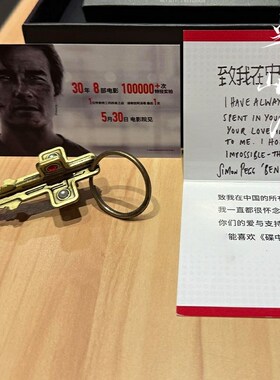 30年 8部电影 100000+次
5月30日 电影院见
致我在中
I HAVE ALWAY
SPENT IN YOU
YOUR LOVE
TO ME. I HO
IMPOSSIBLE-TH
SIMON PEGG 'BEN
致我在中国的所有
我一直都很怀念
你们的爱与支持
能喜欢《碟中